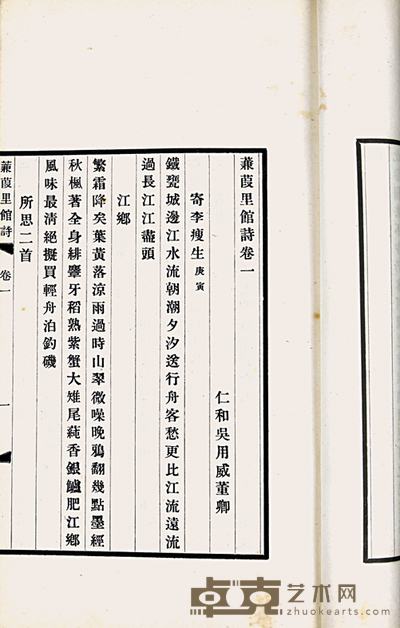 蒹葭里館詩卷一
仁和吳用威董卿
寄李瘦生 庚寅
鐵甕城邊江水流朝潮夕汐送行舟客愁更比江流遠流
過長江江盡頭
江鄉
繁霜降矣葉黃落涼雨過時山翠微噪晚鴉翻幾點墨經
秋楓著全身緋牙稻熟紫蟹大雉尾香銀鱸肥江鄉
風味最清絕擬買輕舟泊釣磯
所思二首
蒹葭里館詩 卷一 一
卓克艺术网
zhuokearts.com